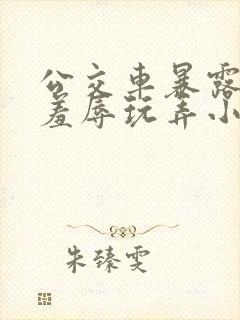 公交车暴露
羞辱玩弄小
朱臻雯